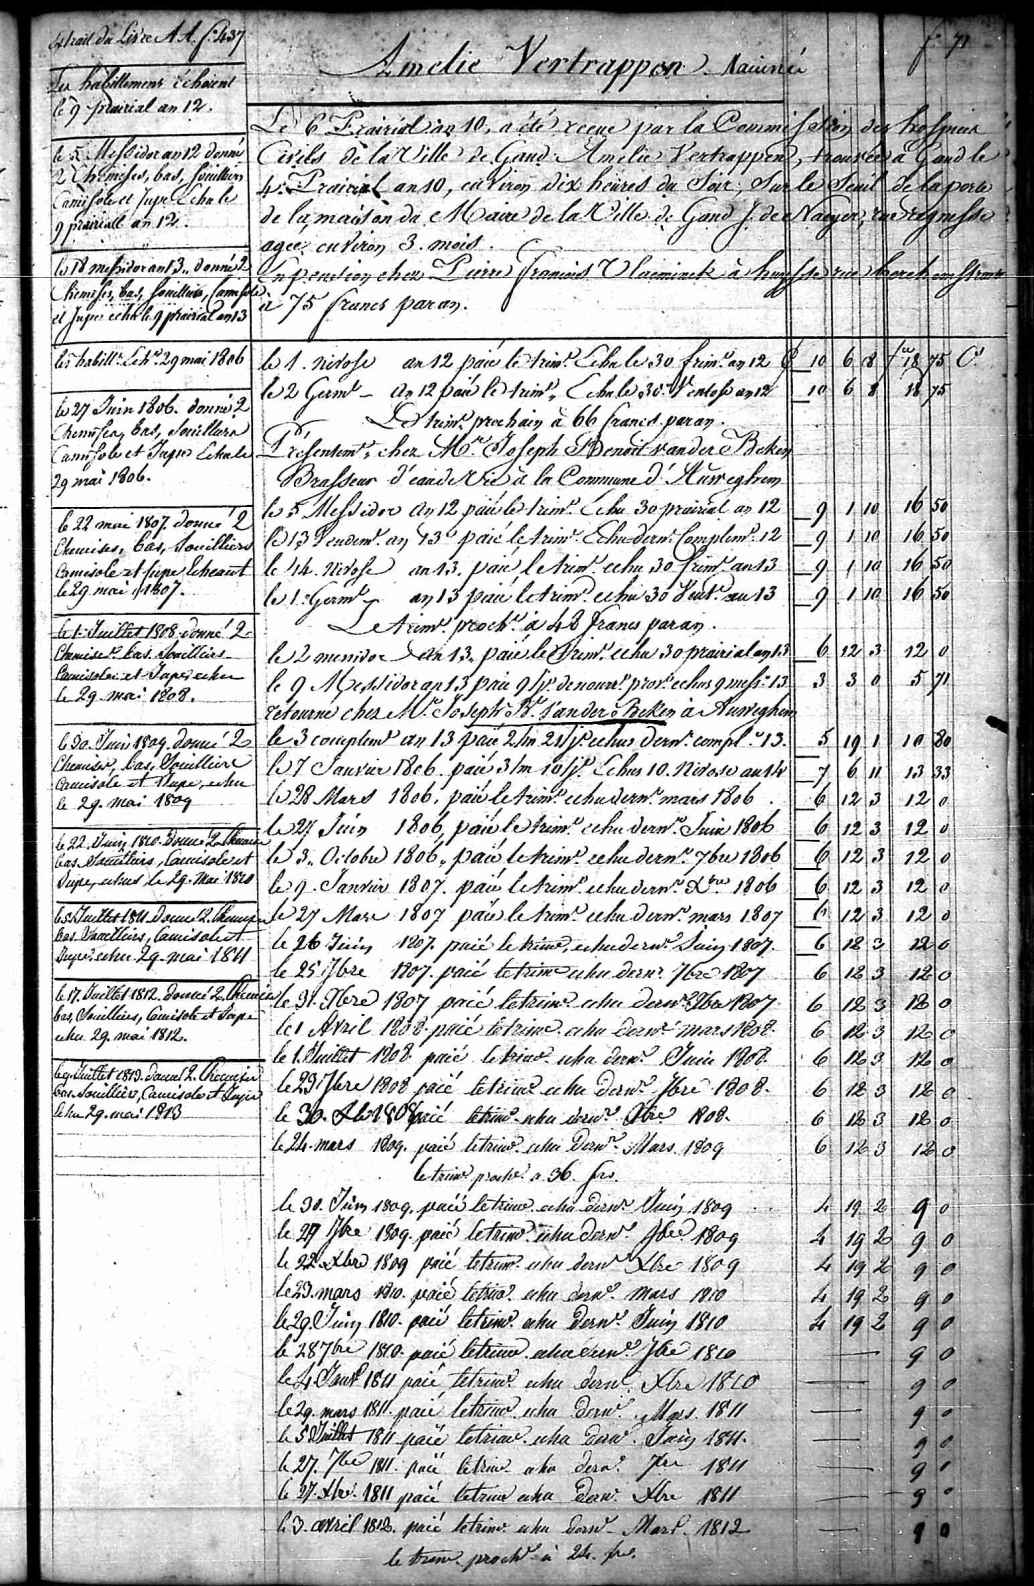 Extrait du Livre A A. f.° 437
f° 71
Amelie Vertrappen
Les habillemens échoient
le 9 prairial an 12.
le 5 Messidor an 12 donné
2 Chemises, bas, souilliers
Camisole et Jupe Echu le
9 prairiall an 12.
le 18 messidor an 13.. donné 2
Chemises, bas, souilliers, Camisole
et Jupe echu le 9 prairial an 13
les habill.s Ech.s 29 mai 1806
le 27 Juin 1806. donné 2
Chemises, bas, souilliers
Camisole et Jupe Echu le
29 mai 1806.
le 22 mai 1807 donné 2
Chemises, bas, Souilliers
Camisole et Jupe Echeant
le 29 mai 1807.
le 1. Juillet 1808 donné 2
Chemises bas souilliers
Camisole et Jupe echu
le 29. mai 1808.
le 30. Juin 1809. donné 2
Chemises, bas, Souilliers
Camisole et Jupe, echu
le 29. mai 1809
le 22. Juin 1810. donné 2. Chemises
bas. Souilliers, Camisole et
Jupe, echus le 29. Mai 1810
le 5 Juillet 1811 donné 2. Chemises
bas. Souilliers, Camisole et
Jupe. echu. 29. mai 1811
le 17. Juillet 1812. donné 2. Chemises
bas, Souilliers, Camisole et Jupe
echu 29. mai 1812.
le 9 Juillet 1813. donné 2. Chemises
bas. Souilliers, Camisole et Jupe
Echu 29. mai 1813
Le 6 Prairial an 10, a été reçue par la Commission des hospices
Civils de la Ville de Gand Amelie Vertrappen, trouvée à Gand le
4. Prairial an 10, environ dix heures du Soir, Sur le Seuil de la porte
de la maison du Maire de la Ville de Gand J. de Naeyer, rue
agée environ 3. mois.
En pension chez Pierre francois Vlaminck à rue
à 75 francs par an.
le 1. nivose an 12 paié le trim.e Echu le 30 frim.e an 12 10 6 8 18 75 C.s
le 2 Germ.l an 12 paié le trim.e Echu le 30. Ventose an 12 10 6 8 18 75
Le trim.e prochain à 66 francs par an.
Présentem.t chez M.r Joseph Benoit vander Beken
Brasseur d'eau de Vie à la Commune d'Auweghem
le 5 Messidor an 12 paié le trim.e Echu 30 prairial an 12 9 1 10 16 50
le 13 Vendem.e an 13 paié le trim.e Echu dern.r Complem.e 12 9 1 10 16 50
le 14. Nivose an 13. paié le trim.e echu 30 frim.e an 13 9 1 10 16 50
le 1. Germ.l an 13 paié le trim.e echu 30 Vent.e au 13 9 1 10 16 50
Le trim.e proch.n à 48 francs par an.
le 2 messidor an 13. paié le trim.e echu 30 prairial an 13 6 12 3 12 0
le 9 Messidor an 13 paié 9 j.s de nourr.e prov.e echus 9 mess.r 13 3 3 0 5 71
retourné chez M.r Joseph B.t Vander Beken à Auweghem
le 3 complem.e an 13 paié 2 m 21 j.s echus dern.r compl.e 13. 5 19 1 10 80
le 7 Janvier 1806. paié 3 m 10 j.s Echus 10. Nivose an 14 7 6 11 13 33
le 28 Mars 1806. paié le trim.e echu dern.r mars 1806 6 12 3 12 0
le 27 Juin 1806, paié le trim.e echu dern.r Juin 1806 6 12 3 12 0
le 3.. Octobre 1806. paié le trim.e echu dern.r 7bre 1806 6 12 3 12 0
le 9. Janvier 1807. paié le trim.e echu dern.r Xbre 1806 6 12 3 12 0
le 27 Mars 1807 paié le trim.e echu dern.r mars 1807 6 12 3 12 0
le 26 Juin 1807. paié le trim.e echu dern.r Juin 1807. 6 12 3 12 0
le 25 7bre 1807. paié le trim.e echu dern.r 7bre 1807 6 12 3 12 0
le 31. Xbre 1807 paié le trim.e echu dern.r Xbre 1807 6 12 3 12 0
le 1 Avril 1808. paié le trim.e echu dern.r mars 1808. 6 12 3 12 0
le 1. Juillet 1808. paié le trim.e echu dern.r Juin 1808. 6 12 3 12 0
le 23 7bre 1808 paié le trim.e echu dern.r 7bre 1808. 6 12 3 12 0
le 30. Xbre 1808 paié le trim.e echu dern.r Xbre 1808. 6 12 3 12 0
le 24. mars 1809. paié le trim.e echu dern.r Mars 1809 6 12 3 12 0
le trim.e proch.n a 36. frs.
le 30. Juin 1809. paié le trim.e echu dern.r Juin 1809 4 19 2 9 0
le 29 7bre 1809. paié le trim.e echu dern.r 7bre 1809 4 19 2 9 0
le 22. Xbre 1809 paié le trim.e echu dern.r Xbre 1809 4 19 2 9 0
le 23. mars 1810. paié le trim.e echu dern.r mars 1810 4 19 2 9 0
le 29. Juin 1810. paié le trim.e echu dern.r Juin 1810 4 19 2 9 0
le 28 7bre 1810. paié le trim.e echu dern.r 7bre 1810 9 0
le 4 Janv.r 1811 paié le trim.e echu dern.r Xbre 1810 9 0
le 29. mars 1811. paié le trim.e echu dern.r Mars 1811 9 0
le 5 Juillet 1811 paié le trim.e echu dern.r Juin 1811. 9 0
le 27. 7bre 1811. paié le trim.e echu dern.r 7bre 1811 9 0
le 27. Xbre. 1811 paié le trim.e echu dern.r Xbre 1811 9 0
le 3. avril 1812. paié le trim.e echu dern.r Mars. 1812 9 0
le trim.e proch.n à 24. frs.